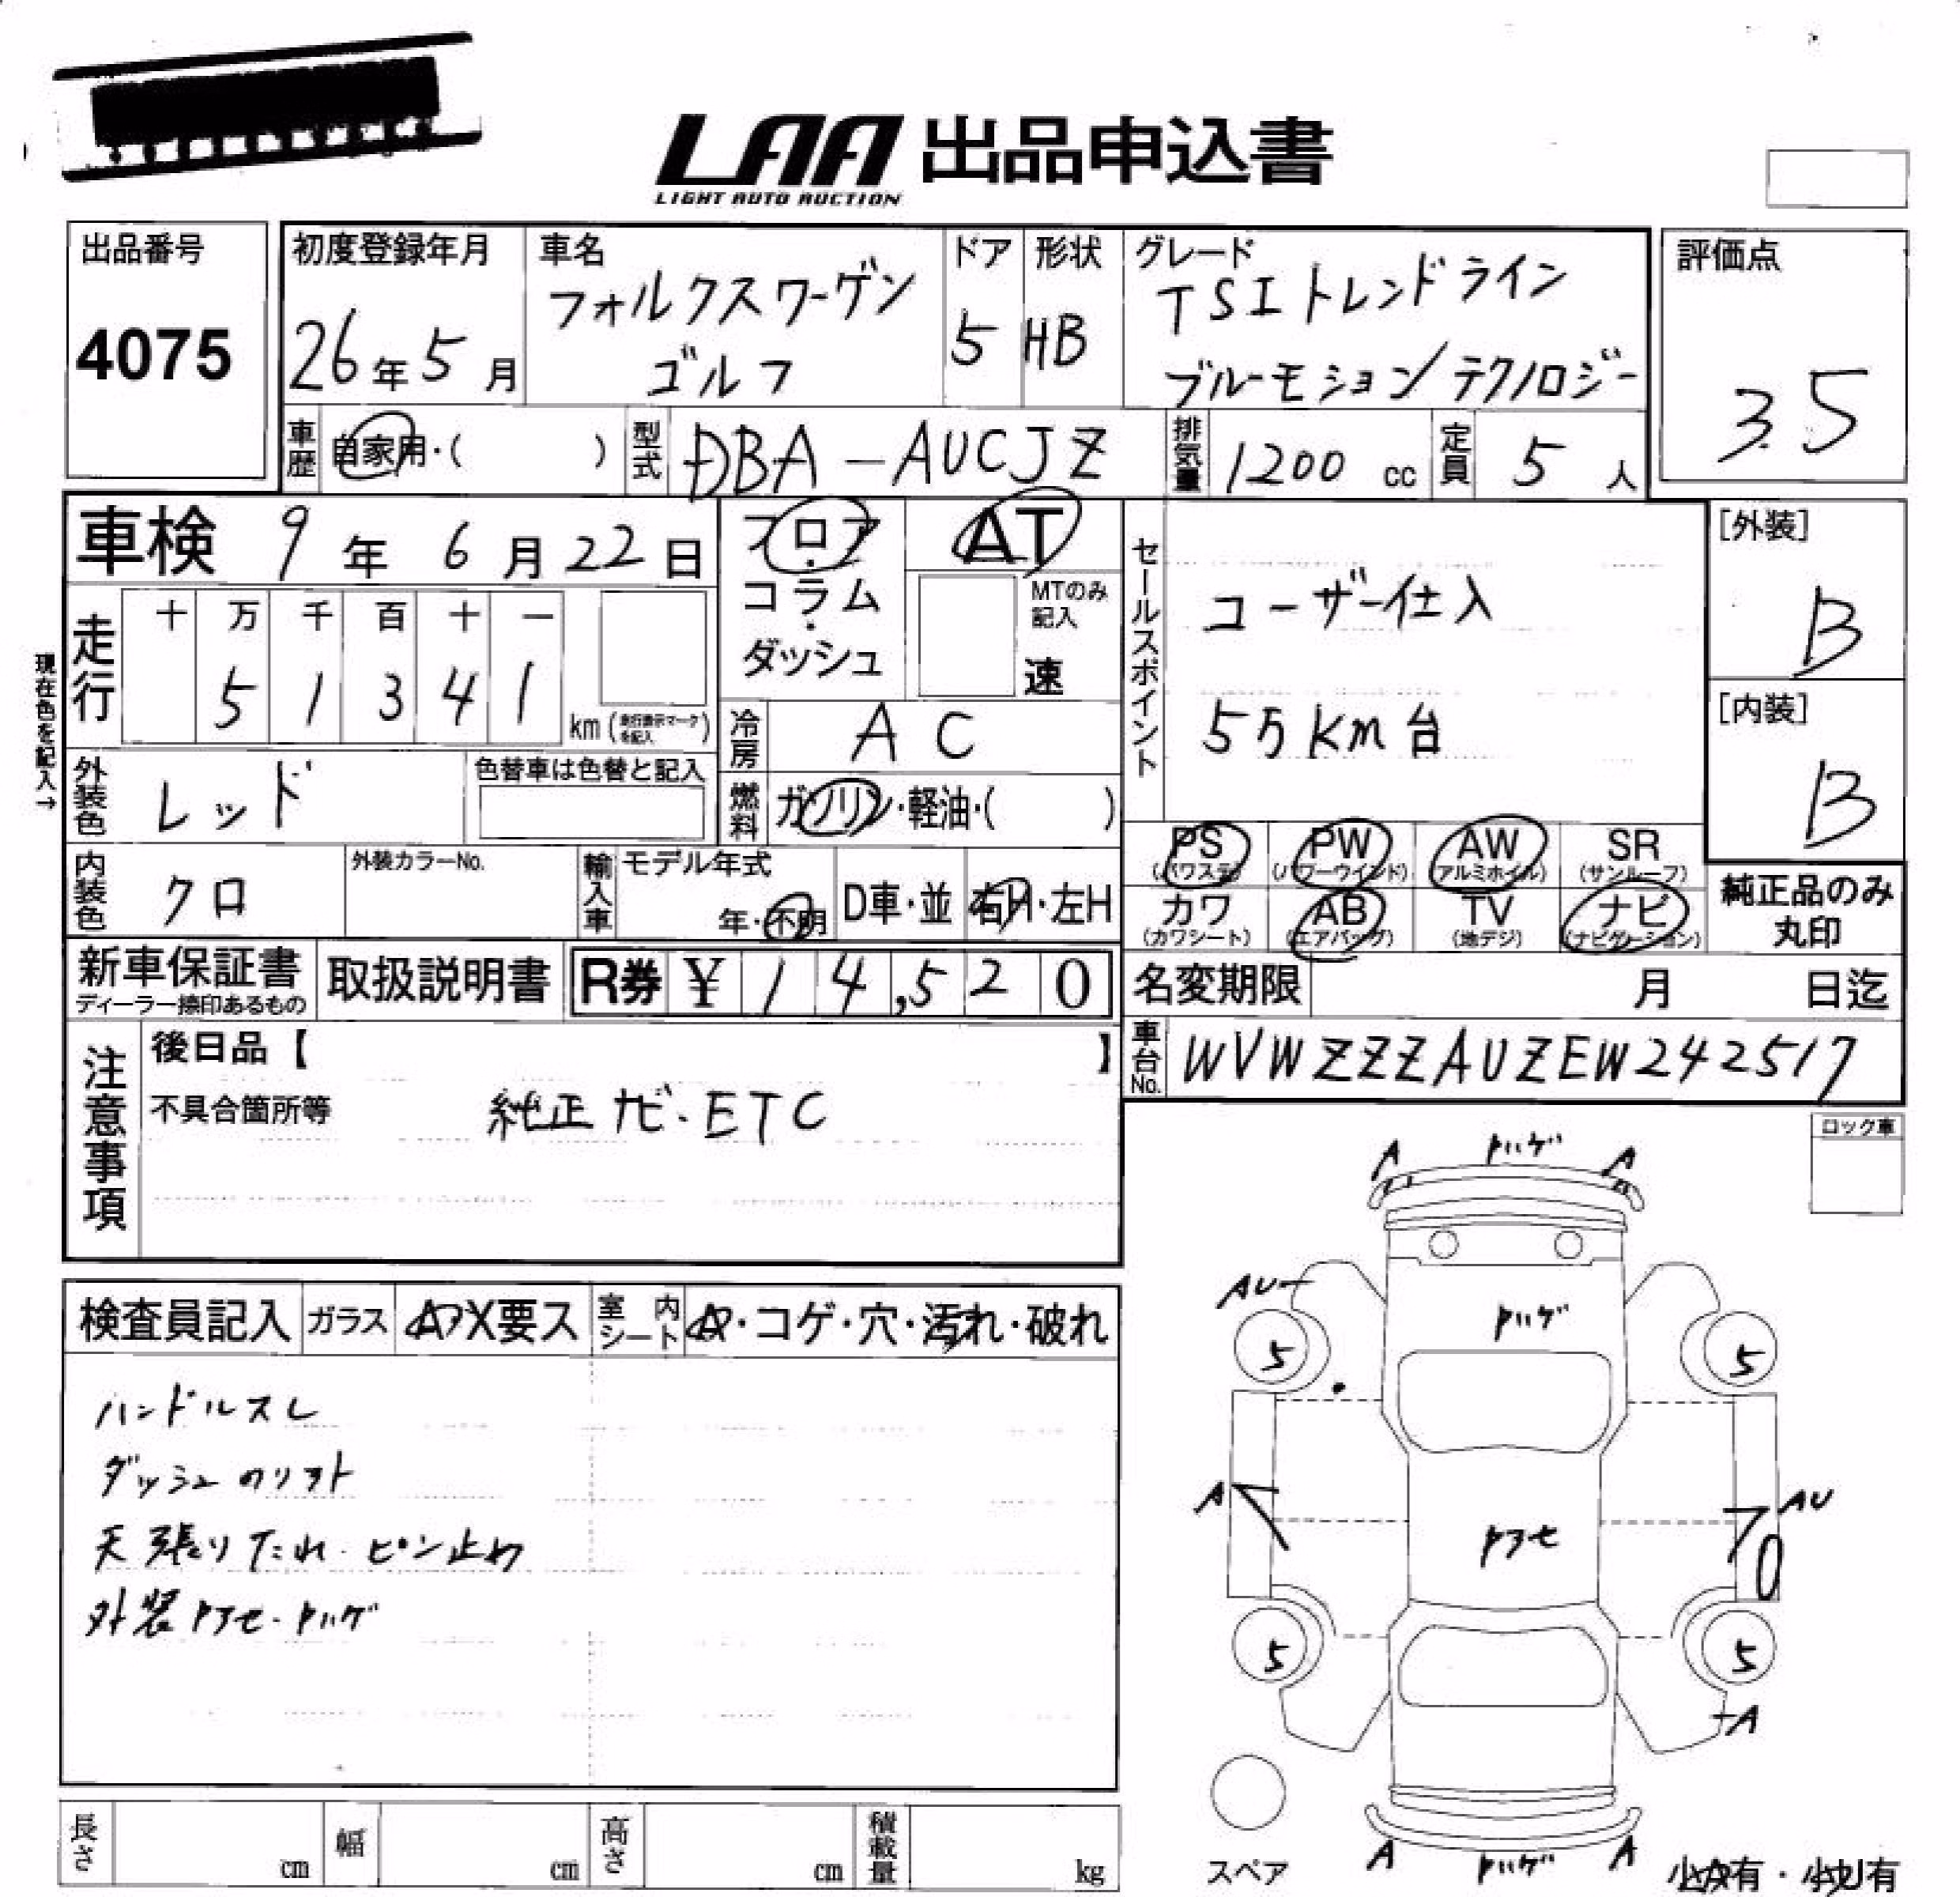 LAA 出品申込書
LIGHT AUTO AUCTION
出品番号
4075
初度登録年月
26年5月
車名
フォルクスワーゲン
ゴルフ
ドア
5
形状
HB
グレード
TSIトレンドライン
ブルーモーション/テクノロジー
評価点
3.5
車歴
自家用・( )
型式
DBA-AUCJZ
排気量
1200 cc
定員
5 人
車検 9年 6月 22日
フロア・
コラム・
ダッシュ
AT
MTのみ
記入
速
セールスポイント
ユーザー仕入
5万km台
[外装]
B
[内装]
B
現在色を記入→
走行
十 万 千 百 十 一
5 1 3 4 1
km (走行表示マークを記入)
冷房
AC
燃料
ガソリン・軽油・( )
外装色
レッド
色替車は色替と記入
内装色
クロ
外装カラーNo.
輸入車
モデル年式
年・不明
D車・並
右H・左H
PS
(パワステ)
PW
(パワーウインド)
AW
(アルミホイル)
SR
(サンルーフ)
カワ
(カワシート)
AB
(エアバッグ)
TV
(地デジ)
ナビ
(ナビゲーション)
純正品のみ
丸印
新車保証書
ディーラー捺印あるもの
取扱説明書
R券 ¥ 14,520
名変期限 月 日迄
車台No.
WVWZZZAUZEW242517
注意事項
後日品【 】
不具合箇所等
純正ナビ・ETC
ロック車
検査員記入
ガラス
A・X要ス
室内シート
A・コゲ・穴・汚れ・破れ
ハンドルスレ
ダッシュのリフト
天張りたれ・ピン止め
外装トアセ・トハゲ
A トハゲ A
AU
トハゲ
5 5
A
トアセ
AU
5 5
A
A トハゲ A
スペア
小A有・小U有
長さ cm
幅 cm
高さ cm
積載量 kg